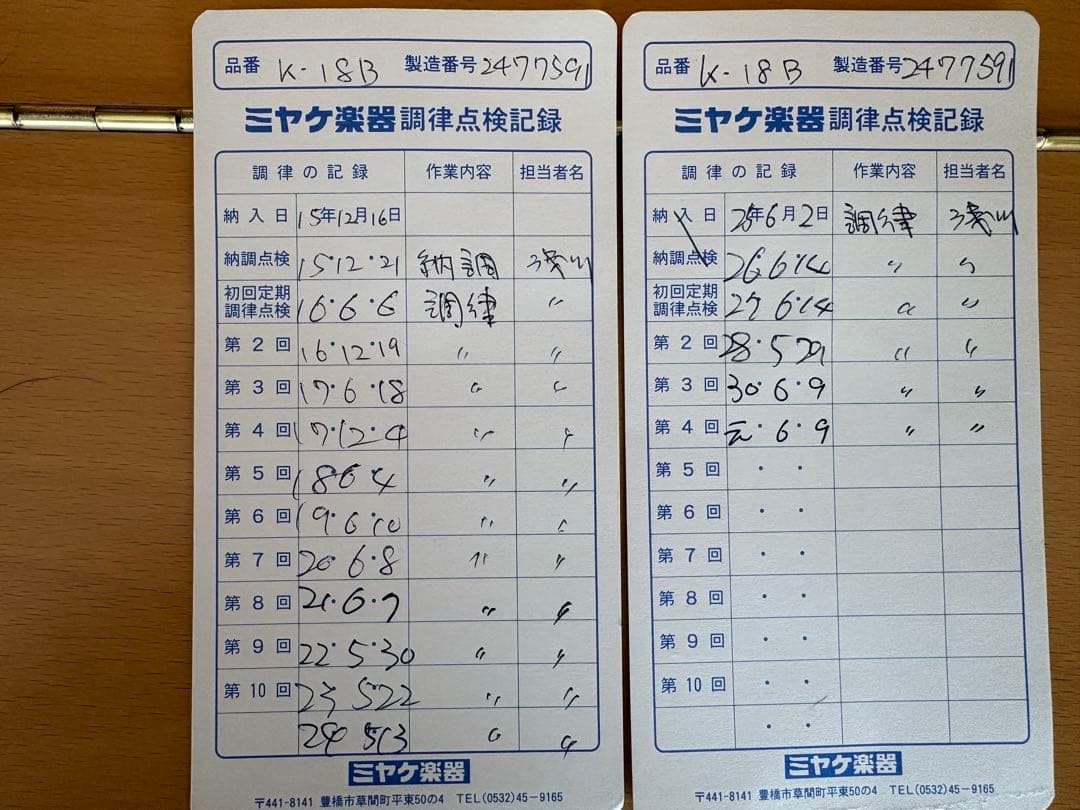 品番 K-18B 製造番号 2477591
ミヤケ楽器 調律点検記録
調律の記録 作業内容 担当者名
納入日 15年12月16日
納調点検 15・12・21 納調
初回定期調律点検 16・6・6 調律 〃
第2回 16・12・19 〃 〃
第3回 17・6・18 〃 〃
第4回 17・12・4 〃 〃
第5回 18・6・4 〃 〃
第6回 19・6・10 〃 〃
第7回 20・6・8 〃 〃
第8回 21・6・7 〃 〃
第9回 22・5・30 〃 〃
第10回 23 5 22 〃 〃
24 5 13 〃 〃
ミヤケ楽器
〒441-8141 豊橋市草間町平東50の4 TEL(0532)45-9165
品番 K-18B 製造番号 2477591
ミヤケ楽器 調律点検記録
調律の記録 作業内容 担当者名
納入日 25年6月2日 調律
納調点検 26 6・14 〃 〃
初回定期調律点検 27 6・14 〃 〃
第2回 28・5 29 〃 〃
第3回 30・6・9 〃 〃
第4回 元・6・9 〃 〃
第5回 ・ ・
第6回 ・ ・
第7回 ・ ・
第8回 ・ ・
第9回 ・ ・
第10回 ・ ・
・ ・
ミヤケ楽器
〒441-8141 豊橋市草間町平東50の4 TEL(0532)45-9165